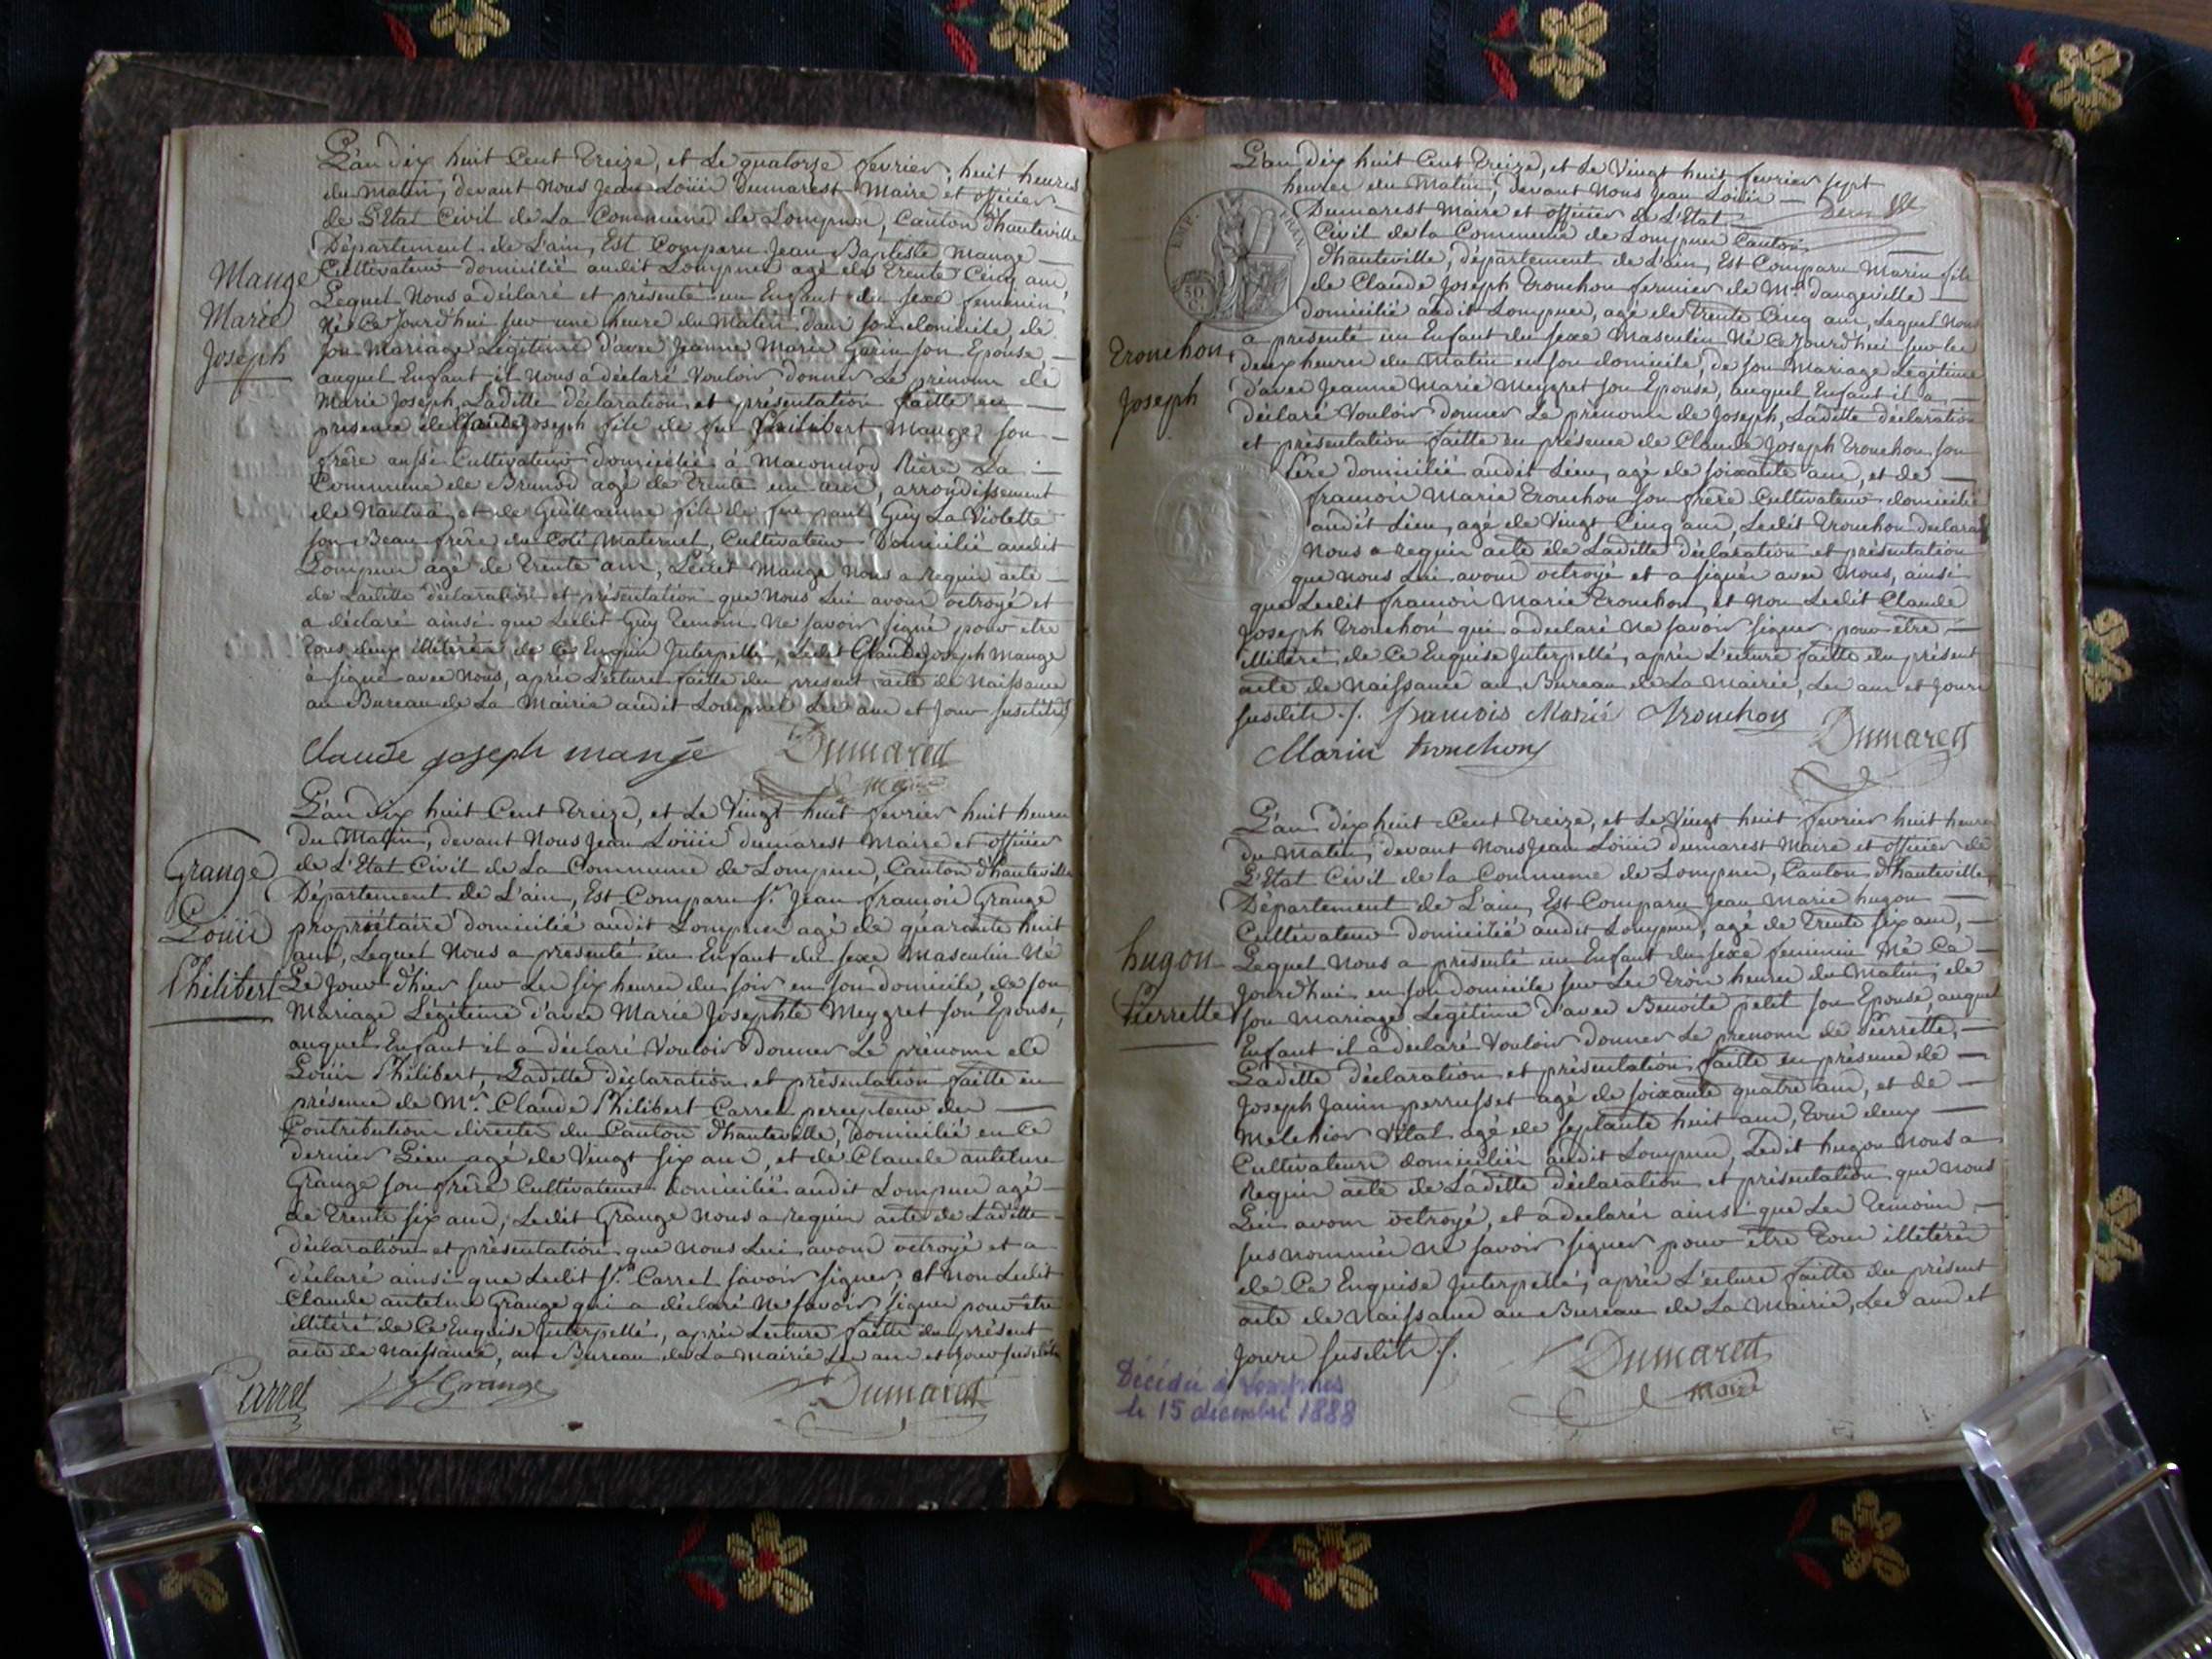 L'an dix huit Cent treize, et Le quatorse fevrier, huit heures
du Matin, devant Nous Jean Loüis Dumarest Maire et officier
de L'Etat Civil de La Commune de Lompnes, Canton d'hauteville
Département de L'ain, Est Comparu Jean Baptiste Mange
Cultivateur domicilié audit Lompnes agé de trente Cinq ans
Lequel Nous a déclaré et présenté un Enfant du sexe feminin
Né Ce Jourd'hui sur une heure du Matin dans son domicile de
son Mariage Légitime d'avec Jeanne Marie Garin son Epouse,
auquel Enfant il Nous a déclaré Vouloir donner Le prénom de
Marie Joseph, Laditte déclaration et présentation faitte en
presence de Claude Joseph fils de feu Philibert Mange son
frère aussi Cultivateur domicilié à Maconnod Rière La
Commune de Brenod agé de trente un ans, arrondissement
de Nantua, et de Guillaume fils de feu paul Guy La Violette
son Beau frère du Coté Maternel, Cultivateur Domicilié audit
Lompnes agé de trente ans, Ledit Mange Nous a requis acte
de Laditte déclaration et présentation que Nous Lui avons octroyé et
a déclaré ainsi que Ledit Guy temoin Ne savoir signé pour être
tous deux illitérés de Ce Enquis Interpellé, Ledit Claude Joseph Mange
à signé avec Nous, après L'ecture faitte du present acte de Naissance
au Bureau de La Mairie audit Lompnes Les ans et Jour susdits
Mange
Marie
Joseph
claude joseph mange Dumarest
Maire
L'an dix huit Cent treize, et Le Vingt huit fevrier huit heures
du Matin, devant Nous Jean Loüis dumarest Maire et officier
de L'Etat Civil de La Commune de Lompnes, Canton d'hauteville
Département de L'ain, Est Comparu Sr. Jean françois Grange
propriétaire domicilié audit Lompnes agé de quarante huit
ans, Lequel Nous a présenté un Enfant du sexe Masculin Né
Le Jour d'hier sur Les six heures du soir en son domicile, de son
Mariage Légitime d'avec Marie Josephte Meygret son Epouse,
auquel Enfant il a déclaré Vouloir donner Le prénom de
Loüis Philibert, Laditte déclaration et présentation faitte en
présence de Mr. Claude Philibert Carrel percepteur des
Contributions directes du Canton d'hauteville, domicilié en Ce
dernier Lieu agé de Vingt six ans, et de Claude antelme
Grange son frère Cultivateur domicilié audit Lompnes agé
de trente six ans, Ledit Grange Nous a requis acte de Laditte
déclaration et présentation que Nous Lui avons octroyé et a
déclaré ainsi que Ledit Sr. Carrel savoir signer, et Non Ledit
Claude antelme Grange qui a déclaré Ne savoir signer pour être
illitéré de Ce Enquise Interpellé, après Lecture faitte du présent
acte de Naissance, au Bureau de La Mairie Les ans et Jour susdits
Grange
Loüis
Philibert
Carrel Grange Dumarest
L'an dix huit Cent treize, et Le Vingt huit fevrier sept
heures du Matin, devant Nous Jean Loüis
Dumarest Maire et officier de L'Etat
Civil de la Commune de Lompnes Canton
d'hauteville, département de L'ain, Est Comparu Marin fils
de Claude Joseph tronchon fermier de Mr. dangeville
domicilié audit Lompnes, agé de trente Cinq ans, Lequel Nous
a présenté un Enfant du sexe Masculin Né Ce Jourd'hui sur les
deux heures du Matin en son domicile, de son Mariage Légitime
d'avec Jeanne Marie Meygret son Epouse, auquel Enfant il a
déclaré Vouloir donner Le prénom de Joseph, Laditte déclaration
et présentation faitte en présence de Claude Joseph tronchon son
Père domicilié audit Lieu, agé de soixante ans, et de
françois Marie tronchon son frère Cultivateur domicilié
audit Lieu, agé de Vingt Cinq ans, Ledit tronchon declarant
Nous a requis acte de Laditte déclaration et présentation
que Nous Lui avons octroyé et a signer avec Nous, ainsi
que Ledit françois Marie tronchon, et Non Ledit Claude
Joseph tronchon qui a déclaré Ne savoir signer pour être
illitéré, de Ce Enquise Interpellé, après L'ecture faitte du présent
acte de Naissance au Bureau de La Mairie, Les ans et Jours
susdits ./. francois Marie tronchon
EMP. FRAN.
50 C.
tronchon
Joseph
Marin tronchon Dumarest
L'an dix huit Cent treize, et Le Vingt huit fevrier huit heures
du Matin, devant Nous Jean Loüis dumarest Maire et officier de
L'Etat Civil de la Commune de Lompnes, Canton d'hauteville,
Département de L'ain, Est Comparu Jean Marie hugon
Cultivateur domicilié audit Lompnes, agé de trente six ans,
Lequel Nous a présenté un Enfant du sexe feminin Né Ce
Jourd'hui en son domicile sur Les trois heures du Matin, de
son Mariage Légitime d'avec Benoite petit son Epouse, auquel
Enfant il a déclaré Vouloir donner Le prenom de Pierrette,
Laditte déclaration et présentation faitte en présence de
Joseph Janin perrusset agé de soixante quatre ans, et de
Melchior Vital agé de septante huit ans, tous deux
Cultivateurs domiciliés audit Lompnes, Ledit hugon Nous a
Requis acte de Laditte déclaration et présentation que Nous
Lui avons octroyé, et a declarés ainsi que Les temoins
sus nommés Ne savoir signer pour être tous illitérés
de Ce Enquise Interpellé, après L'ecture faitte du présent
acte de Naissance au Bureau de La Mairie, Les ans et
Jours susdits ./. Dumarest
Maire
hugon
Pierrette
Décédée à Lompnes
le 15 décembre 1888